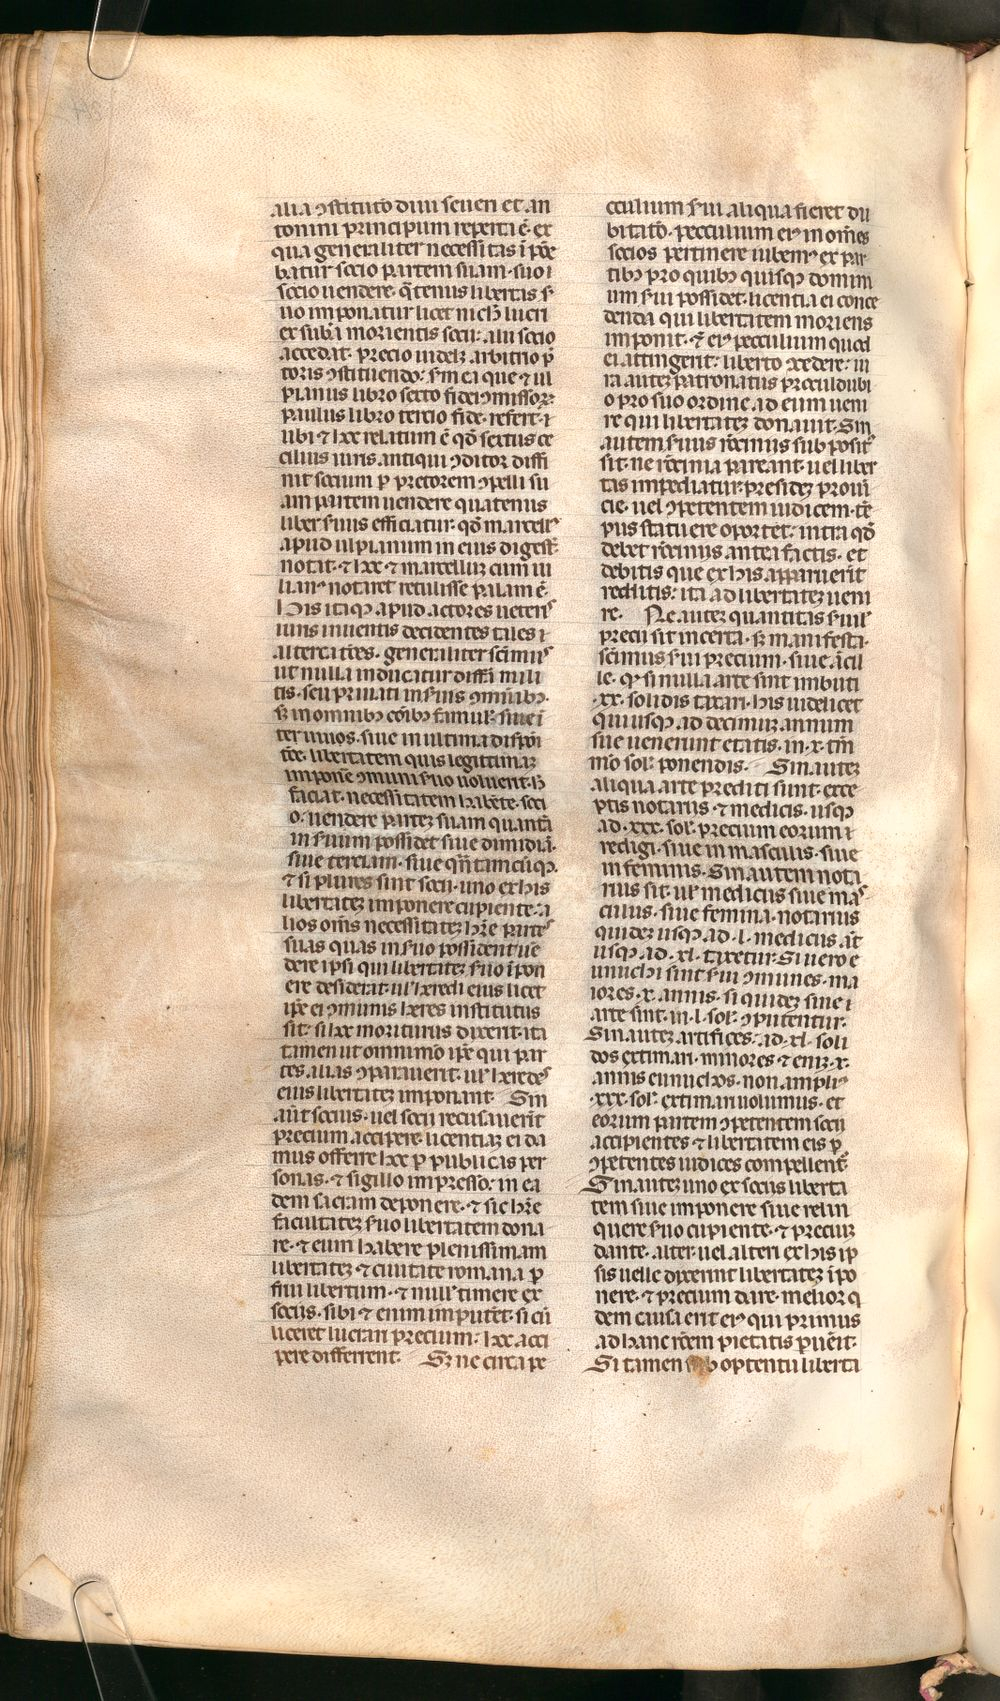 alia ɔstitutō diui seueri et an
tonini principum reperta ē. ex
qua generaliter necessitas ipōe
batur socio partem suam. suo ı
socio uendere. q̄tenus libertas s̄
uo imponatur licet nichꝫ lucri
ex sub̄a morientis socii: alii socio
accedat. precio uidelꝫ arbitrio p̄
toris ɔstituendo: sm̄ ea que ⁊ ul
pianus libro sexto fideiɔmissorꝝ
paulus libro tercio fide. refert. ⁊
ubi ⁊ hoc relatum ē qđ sextus ce
cilius iuris antiqui ɔditor diffi
nit socium ꝑ pretorem ɔpelli su
am partem uendere quatenus
liber s̄uus efficiatur. qđ marcell᷒
apud ulpianum in eius digest̄.
notat. ⁊ hoc ⁊ marcellum cum iu
lian᷒ notaret retulisse palam ē.
His itaqꝫ apud actores ueteris
iuris inuentis decidentes tales ı
altercatōes. generaliter sācim᷒
ut nulla inducatur diffīa mili
tis. seu priuati in s̄uis ɔmunibꝫ.
sꝫ in omnibꝫ cōibꝫ famul᷒. siue ī
ter uiuos. siue in ultima dispōi
tōe. libertatem quis legitimaꝫ
inponē ɔmuni s̄uo uoluerit. ħ
faciat. necessitatem habēte. soci
o: uendere parteꝫ suam quantā
in s̄uum possidet siue dimidiā.
siue terciam. siue qn̄tamcūqꝫ.
⁊ si plures sint socii. uno ex his
libertateꝫ imponere cupiente. a
lios om̄s necessitateꝫ hr̄e partes
suas quas in s̄uo possident ue
dere ipsi qui libertateꝫ s̄uo īpon
ere desiderat. ul᷒ heredi eius licet
ip̄e ei ɔmunis heres institutus
sit. si hoc moriturus dixerit. ita
tamen ut omnimō ip̄e qui par
tes alias ɔparauerit. ul᷒ heredes
eius libertateꝫ imponant. Sin
aūt socius. uel socii recusauerīt
precium accipere. licentiaꝫ ei da
mus offerre hoc ꝑ publicas per
sonas. ⁊ sigillo impresso: in ea
dem sacram deponere. ⁊ sic hr̄e
facultateꝫ s̄uo libertatem dona
re. ⁊ eum habere plenissimam
libertateꝫ ⁊ ciuitate romana ꝑ
frui libertum. ⁊ nul᷒ timere ex
sociis. sibi ⁊ enim imputet. si cū
liceret lucrari precium: hoc acci
pere differrent. Sꝫ ne circa pe
cculium s̄ui aliqua fieret du
bitatō. pecculium ei᷒ in om̄es
socios pertinere iubem᷒ ex par
tibꝫ pro quibꝫ quisqꝫ domini
um s̄ui possidet. licentia ei conce
denda qui libertatem moriens
imponit. ⁊ ei᷒ pecculium quod
ei attingerit: liberto ɔcedere: iu
ra auteꝫ patronatus proculdubi
o pro suo ordine. ad eum ueni
re qui libertateꝫ donauit. Sin
autem s̄uus rōcinius sub posit᷒
sit. ne rōcinia pareant. uel liber
tas impediatur. presideꝫ proui
cie. uel ɔpetentem iudicem. tē
pus statuere oportet: intra qđ
debet rōcinus antea factis. et
debitis que ex his apparuerīt
redditis: ita ad libertateꝫ ueni
re. Ne auteꝫ quantitas s̄uil᷒
precii sit incerta. sꝫ manifesta.
sācimus s̄ui precium. siue ācil
le. qꝫ si nulla arte sint imbuti
.xx. solidis taxari. his uidelicet
qui usqꝫ ad decimuꝫ annum
sue uenerunt etatis. in .x. tm̄
mō sol᷒. ponendis. Sin auteꝫ
aliqua arte prediti sunt. exce
ptis notariis. ⁊ medicis. usqꝫ
ad .xxx. sol᷒. precium eorum ı
redigi. siue in masculis. siue
in feminis. Sin autem nota
rius sit. ul᷒ medicus siue mas
culus. siue femina. notarius
quideꝫ usqꝫ ad .l. medicus aūt
usqꝫ ad .xl. taxetur. Si uero e
unuchi sint s̄ui ɔmunes. ma
iores .x. annis. si quideꝫ sine ı
arte sint. in .l. sol᷒. ɔputentur.
Sin auteꝫ artifices: ad .xl. soli
dos extimari. minores ⁊ eniꝫ .x.
annis eunuchos. non ampli᷒
.xxx. sol᷒. extimari uolumus. et
eorum partem ɔpetentem socii
accipientes ⁊ libertatem eis ꝑ
ɔpetentes iudices compellent᷒.
Sin auteꝫ uno ex sociis liberta
tem siue imponere siue relin
quere s̄uo cupiente. ⁊ preciuꝫ
dante. alter uel alteri ex his ip
sis uelle dixerint libertateꝫ īpo
nere. ⁊ precium dare. melior q
dem causa erit ei᷒ qui primus
ad hanc rōem pietatis ꝑuēit.
Si tamen sub optentu liberta